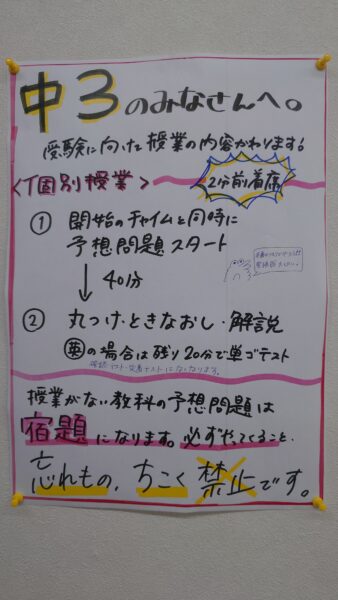 中3のみなさんへ。
受験に向けた授業の内容かわります!
<個別授業>
2分前着席
① 開始のチャイムと同時に
予想問題スタート
↓ 40分
② 丸つけ・ときなおし・解説
英の場合は残り20分で単ゴテスト
授業がない教科の予想問題は
宿題になります。必ずやってくること。
忘れもの、ちこく禁止です。